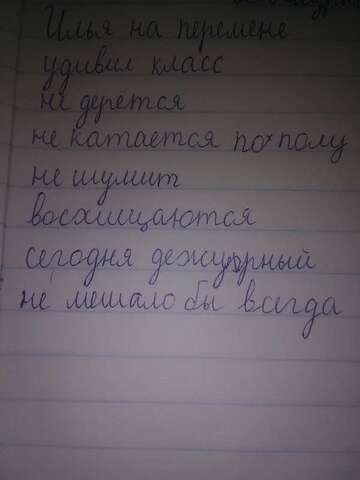 Илья на перемене
удивил класс
не дерётся
не катается по полу
не шумит
восхищаются
сегодня дежурный
не мешало бы всегда